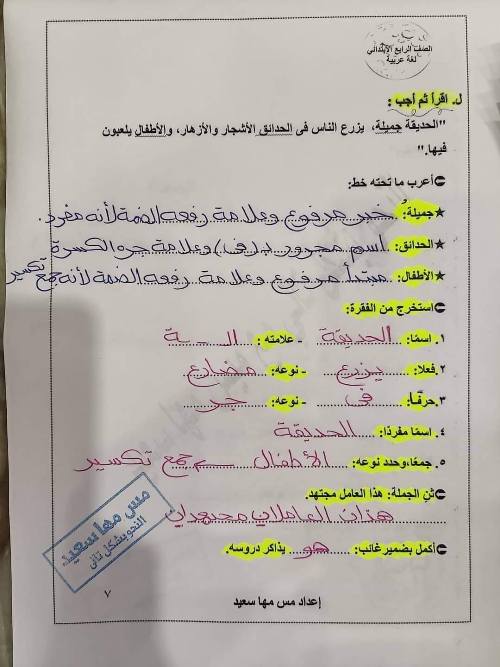 الصف الرابع الابتدائي
لغة عربية
ل. اقرأ ثم أجب :
"الحديقة جميلة، يزرع الناس فى الحدائق الأشجار والأزهار، والأطفال يلعبون
فيها."
أعرب ما تحته خط:
★جميلة: خبر مرفوع وعلامة رفعه الضمة لأنه مفرد.
★الحدائق: اسم مجرور بـ(فى) وعلامة جره الكسرة
★الأطفال: مبتدأ مرفوع وعلامة رفعه الضمة لأنه جمع تكسير
استخرج من الفقرة:
١. اسمًا: الحديقة - علامته : الـ - ـة
٢. فعلا: يزرع - نوعه: مضارع
٣. حرفًا: فى - نوعه: جر
٤. اسمًا مفردًا: الحديقة
٥. جمعًا، وحدد نوعه: الأطفال جمع تكسير
ثنِّ الجملة: هذا العامل مجتهد.
هذان العاملان مجتهدان
أكمل بضمير غائب: هو يذاكر دروسه.
مس مها سعيد
النحو بشكل تانى
٧
إعداد مس مها سعيد